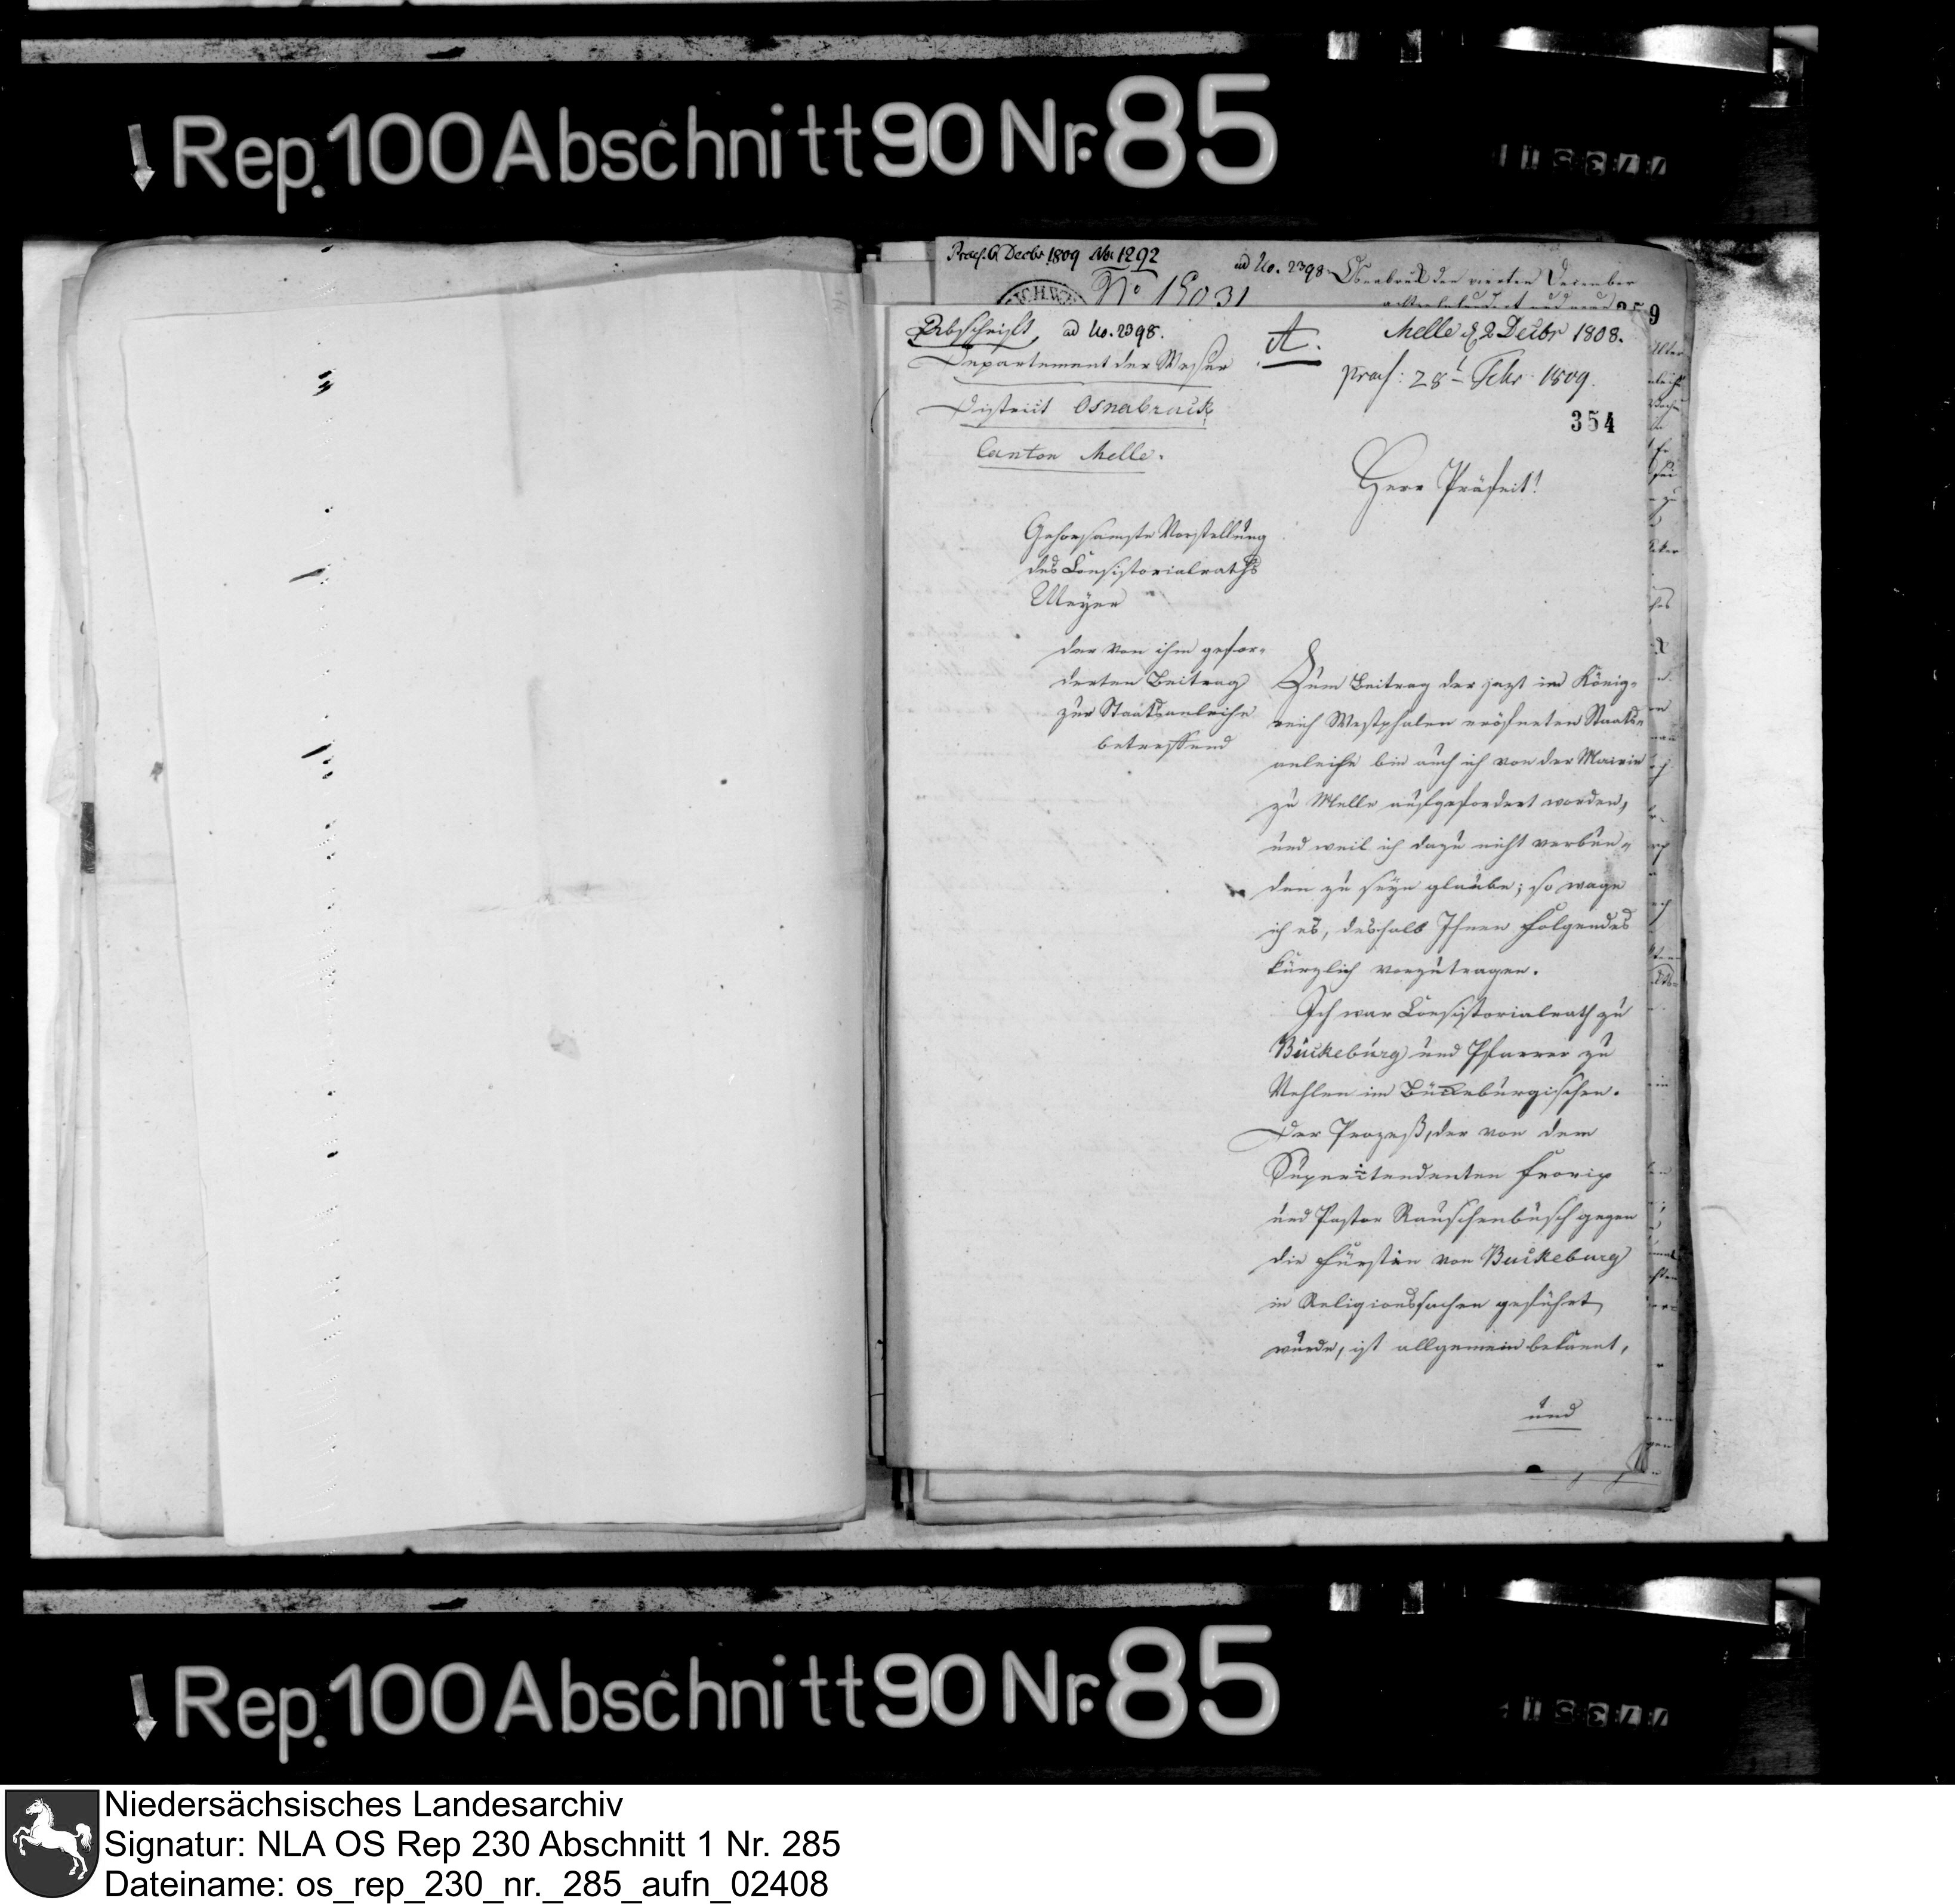 Rep. 100 Abschnitt 90 Nr. 85
Praes. 6 Decbr 1809 No. 1292
ad No. 2398
Osnabrück den vierten December
No 15031
359
Abschrift, ad No. 2398.
A.
Melle d 2 Decbr 1808.
praes: 28t Febr 1809.
Departement der Weser
District Osnabrück
Canton Melle.
354
Herr Präfect!
Gehorsamste Vorstellung
des Consistorialraths
Meyer
der von ihm gefor-
derten Beitrag
zur Staatsanleihe
betreffend
Zum Beitrag der jezt im König-
reich Westphalen eröfneten Staats-
anleihe bin auch ich von der Mairie
zu Melle aufgefordert worden,
und weil ich dazu nicht verbun-
den zu seyn glaube; so wage
ich es, deshalb Ihnen folgendes
kürzlich vorzutragen.
Ich war Consistorialrath zu
Bückeburg und Pfarrer zu
Vehlen im Bückeburgischen.
Der Prozeß, der von dem
Superitendenten Froriep
und Pastor Rauschenbusch gegen
die Fürstin von Buckeburg
in Religionssachen geführt
wurde, ist allgemein bekannt,
und
Rep. 100 Abschnitt 90 Nr. 85
Niedersächsisches Landesarchiv
Signatur: NLA OS Rep 230 Abschnitt 1 Nr. 285
Dateiname: os_rep_230_nr._285_aufn_02408